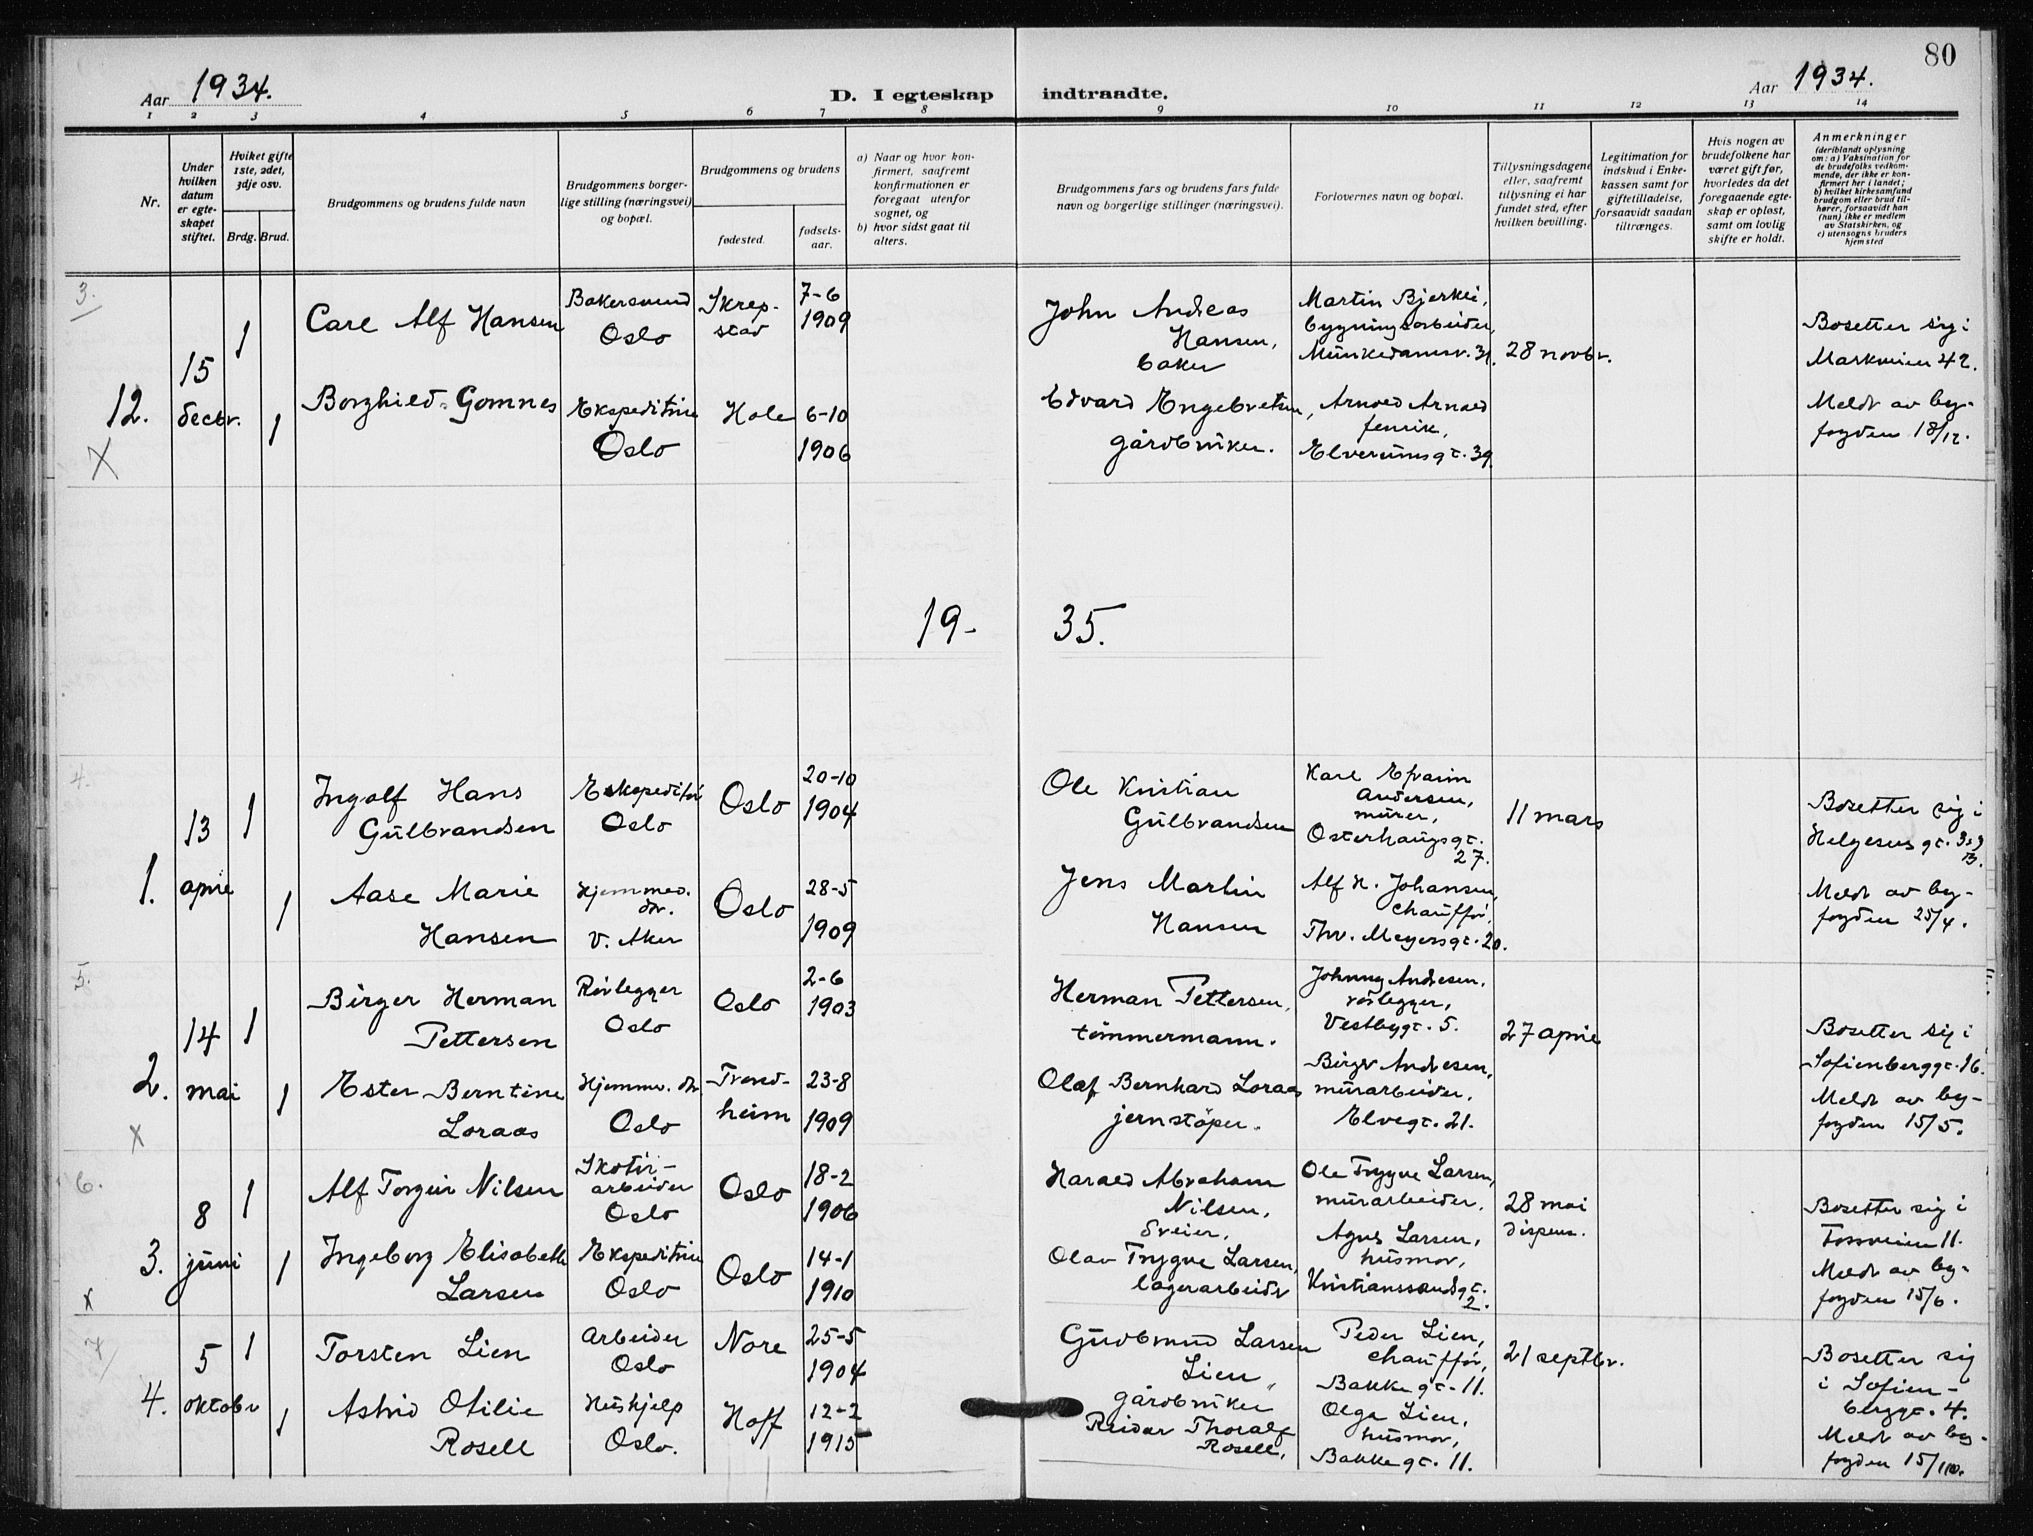 80
Aar 1934.
D. I egteskap indtraadte.
Aar 1934.
1 2 3 4 5 6 7 8 9 10 11 12 13 14
Nr.
Under hvilken datum er egteskapet stiftet.
Hviket gifte 1ste, 2det, 3dje osv.
Brdg. Brud.
Brudgommens og brudens fulde navn
Brudgommens borgerlige stilling (næringsvei) og bopæl.
Brudgommens og brudens
fødested.
fødselsaar.
a) Naar og hvor konfirmert, saafremt konfirmationen er foregaat utenfor sognet, og
b) hvor sidst gaat til alters.
Brudgommens fars og brudens fars fulde navn og borgerlige stillinger (næringsvei).
Forlovernes navn og bopæl.
Tillysningsdagene eller, saafremt tillysning ei har fundet sted, efter hvilken bevilling.
Legitimation for indskud i Enkekassen samt for giftetilladelse, forsaavidt saadan tiltrænges.
Hvis nogen av brudefolkene har været gift før, hvorledes da det foregaaende egteskap er opløst, samt om lovlig skifte er holdt.
Anmerkninger
(deriblandt oplysning om: a) Vaksination for de brudefolks vedkommende, der ikke er konfirmert her i landet; b) hvilket kirkesamfund brudgom eller brud tilhører, forsaavidt han (hun) ikke er medlem av Statskirken, og c) utensogns bruders hjemsted
3.
12.
X
15
decbr.
1
Carl Alf Hansen
Bakersvend
Oslo
7-6
1909
John Andreas
Hansen,
baker
Martin Bjerkli,
bygningsarbeider,
Munkedamsv. 31.
28 novbr.
Bosetter sig i
Markveien 42.
1
Borghild Gomnes
Ekspeditrise
Oslo
Hole
6-10
1906
Edvard Engebretsen,
gårdbruker.
Arnold Arnold
fenrik,
Elverumsgt. 39.
Meldt av by-
fogden 18/12.
19- 35.
4.
1.
13
april
1
Ingolf Hans
Gulbrandsen
Ekspeditør
Oslo
Oslo
20-10
1904
Ole Kristian
Gulbrandsen
Karl Efraim
Andersen,
murer,
Osterhausgt.
27.
11 mars
Bosetter sig i
Helgesens gt. 
1
Aase Marie
Hansen
Hjemmev.
dtr.
V. Aker
Oslo
28-5
1909
Jens Martin
Hansen
Alf H. Johansen,
chauffør.
Thv. Meyersgt. 20.
Meldt av by-
fogden 25/4.
5.
2.
X
14
mai
1
Birger Herman
Pettersen
Rørlegger
Oslo
Oslo
2-6
1903
Herman Pettersen,
tømmermann.
Johnny Andresen,
rørlegger,
Vestbygt. 5.
27 april
Bosetter sig i
Sofienberggt. 16.
1
Ester Berntine
Loraas
Hjemmev. dtr.
Oslo
Trond-
heim
23-8
1909
Olaf Bernhard Loraas
jernstøper.
Birger Andresen,
murarbeider.
Elvegt. 21.
Meldt av by-
fogden 15/5.
6.
3.
X
8
juni
1
Alf Torgeir Nilsen
Skotøi-
arbeider
Oslo
Oslo
18-2
1906
Harald Abraham
Nilsen,
dreier.
Ole Trygve Larsen,
murarbeider.
28 mai
dispens.
Bosetter sig i
Fossveien 11.
1
Ingeborg Elisabeth
Larsen
Ekspeditrise
Oslo
Oslo
14-1
1910
Olav Trygve Larsen,
lagerarbeider
Agnes Larsen,
husmor,
Kristianssandsgt.
2.
Meldt av by-
fogden 15/6.
7
4.
5
oktober
1
Torsten Lien
Arbeider
Oslo
Nore
25-5
1904
Gudbrand Larsen
Lien,
gårdbruker
Peder Lien,
chauffør,
Bakkegt. 11.
21 septbr.
Bosetter sig
i Sofien-
berggt. 4.
1
Astrid Otilie
Rosell
Hushjelp
Oslo.
Hoff
12-2
1915
Reidar Thoralf
Rosell,
Olga Lien,
husmor,
Bakkegt. 11.
Meldt av by-
fogden 15/10.